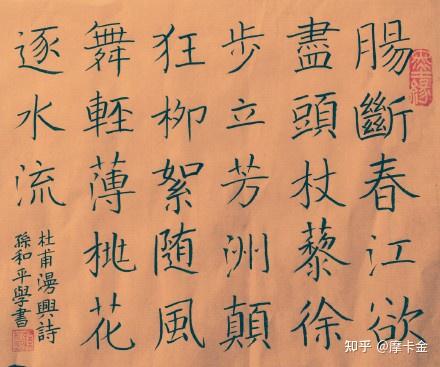 腸斷春江欲
盡頭杖藜徐
步立芳洲顛
狂柳絮随風
舞輕薄桃花
逐水流
杜甫漫興詩
孫和平學書
知乎 @摩卡金